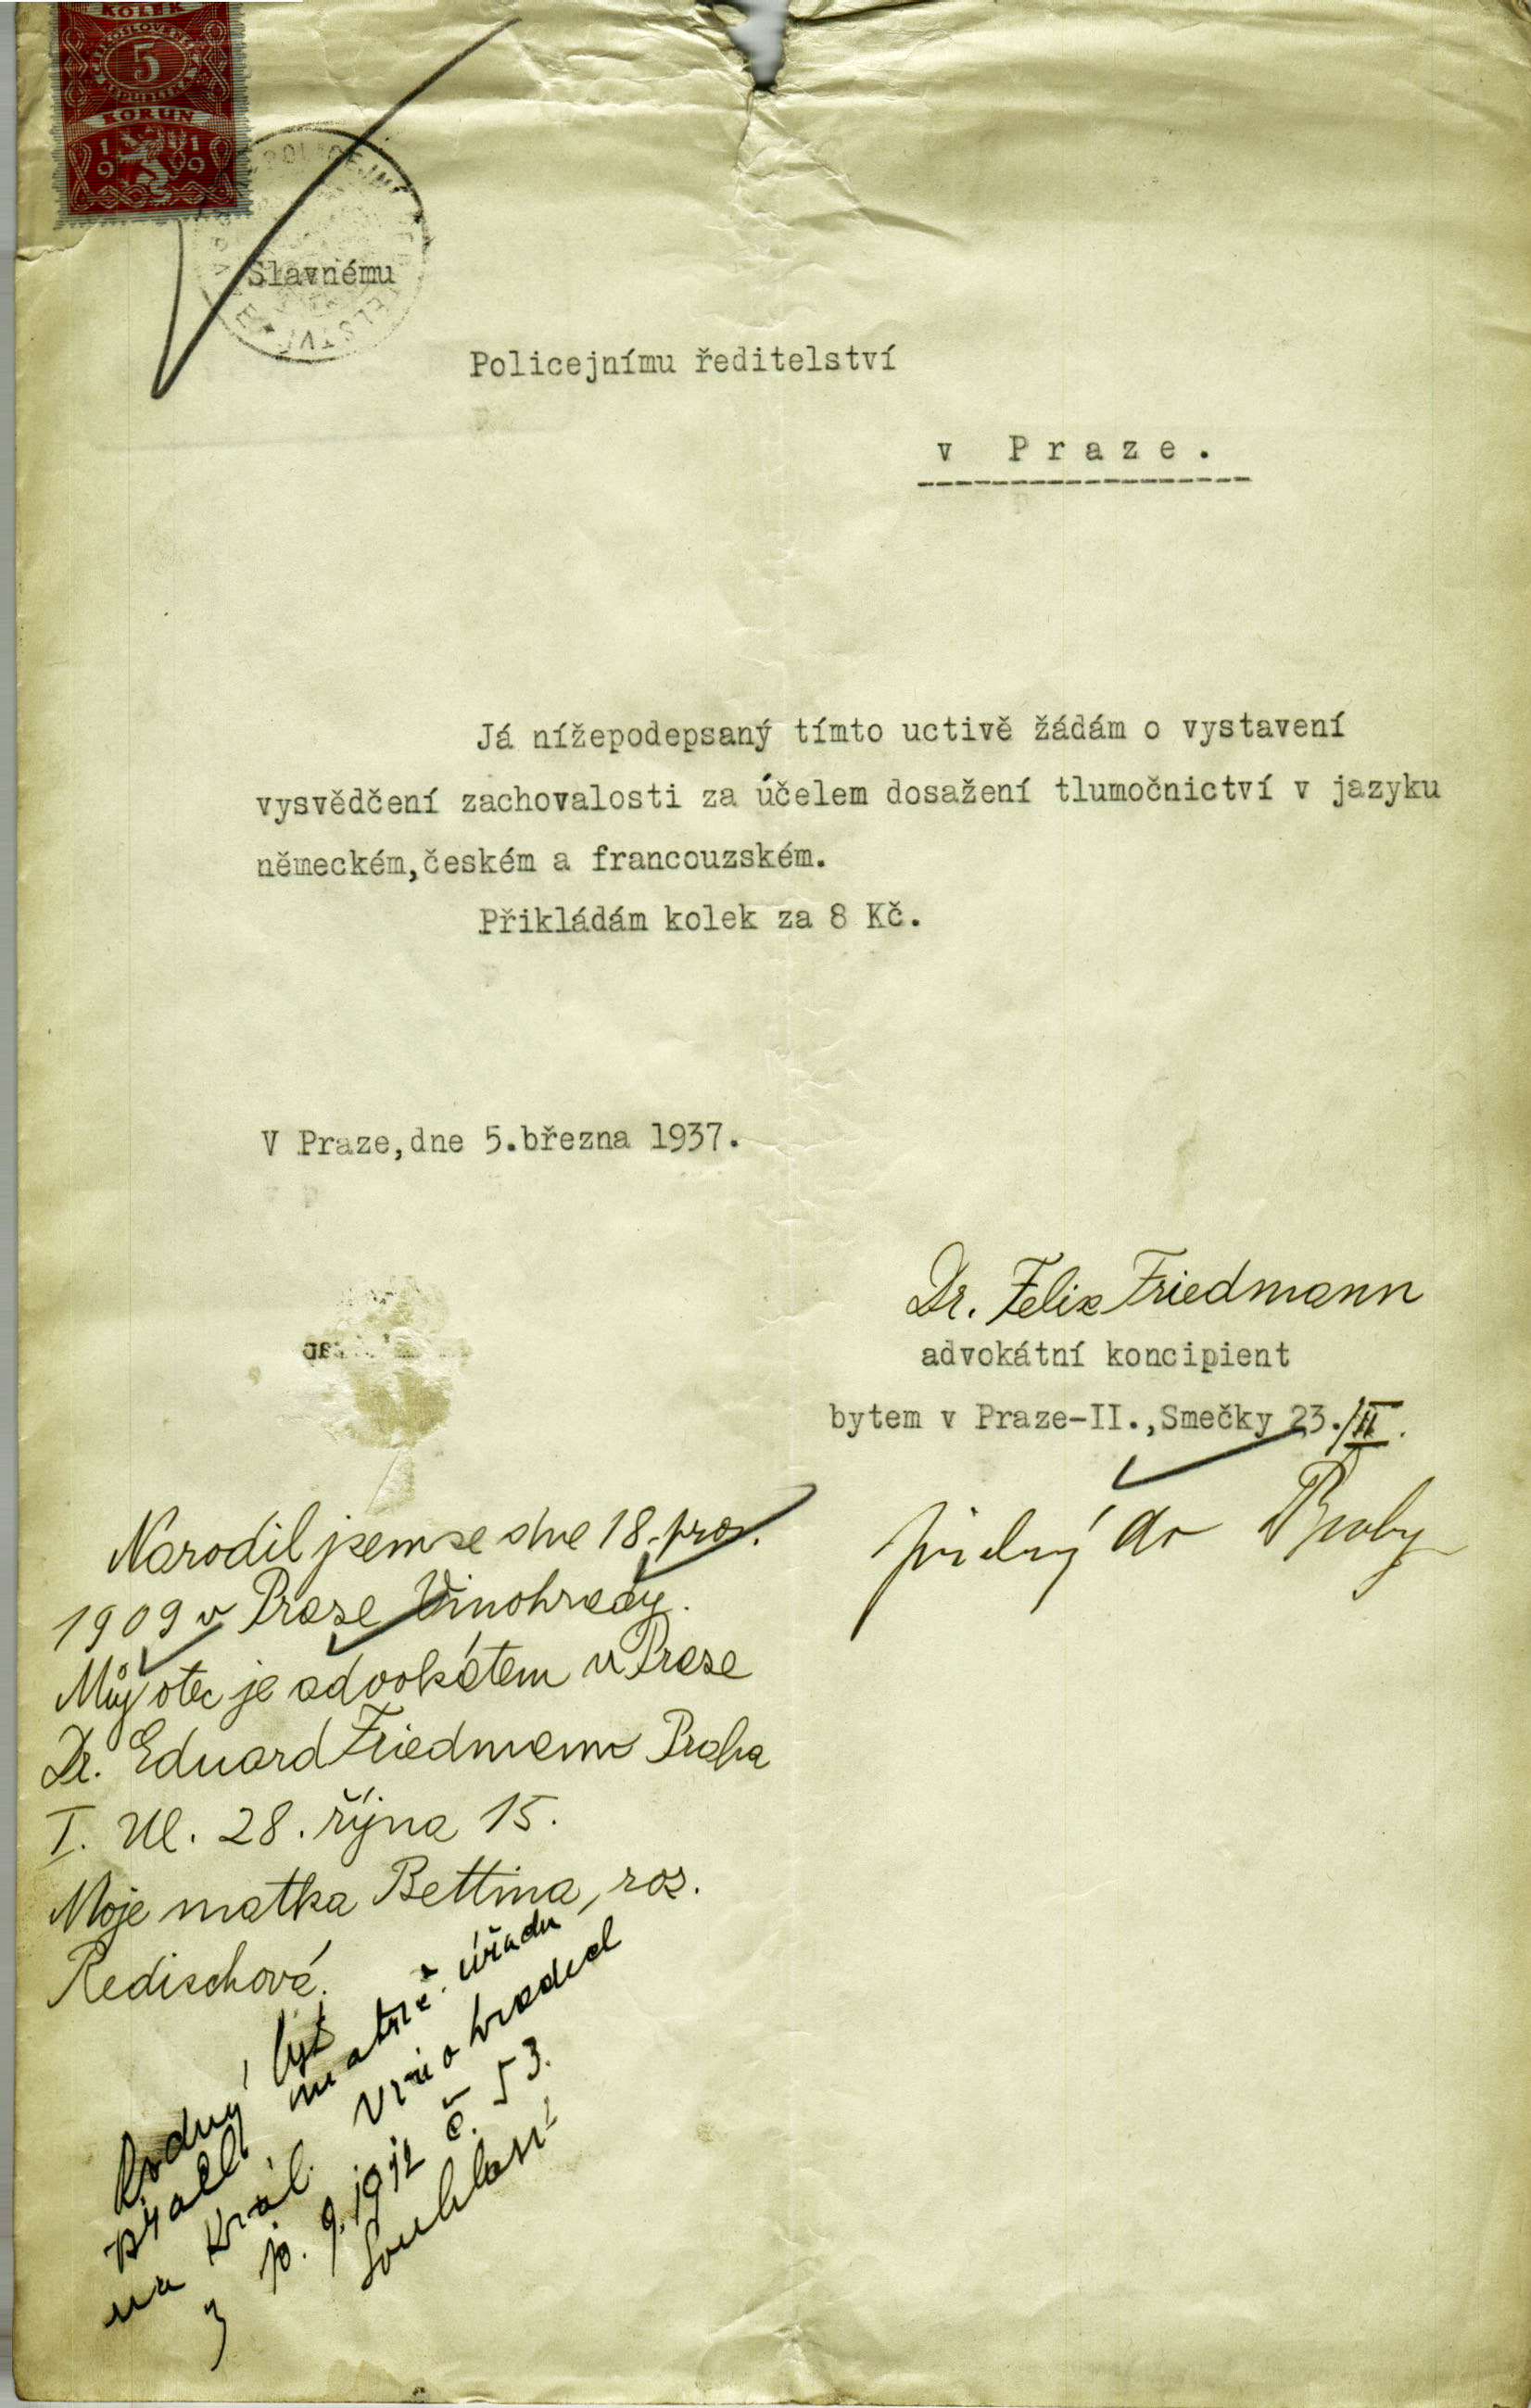 KOLEK
5
KORUN
1919
Slavnému
Policejnímu ředitelství
v Praze.
Já nížepodepsaný tímto uctivě žádám o vystavení
vysvědčení zachovalosti za účelem dosažení tlumočnictví v jazyku
německém,českém a francouzském.
Přikládám kolek za 8 Kč.
V Praze,dne 5.března 1937.
Dr. Felix Friedmann
advokátní koncipient
bytem v Praze-II.,Smečky 23./II.
do Prahy
Narodil jsem se dne 18. pros.
1909 v Praze Vinohrady.
Můj otec je advokátem v Praze
Dr. Eduard Friedmann Praha
I. Ul. 28. října 15.
Moje matka Bettina, roz.
Redischová.
Rodný list
matrič. úřadu
na Král. Vinohradech
z 10. 9. 1912 č. 53.
Souhlasí